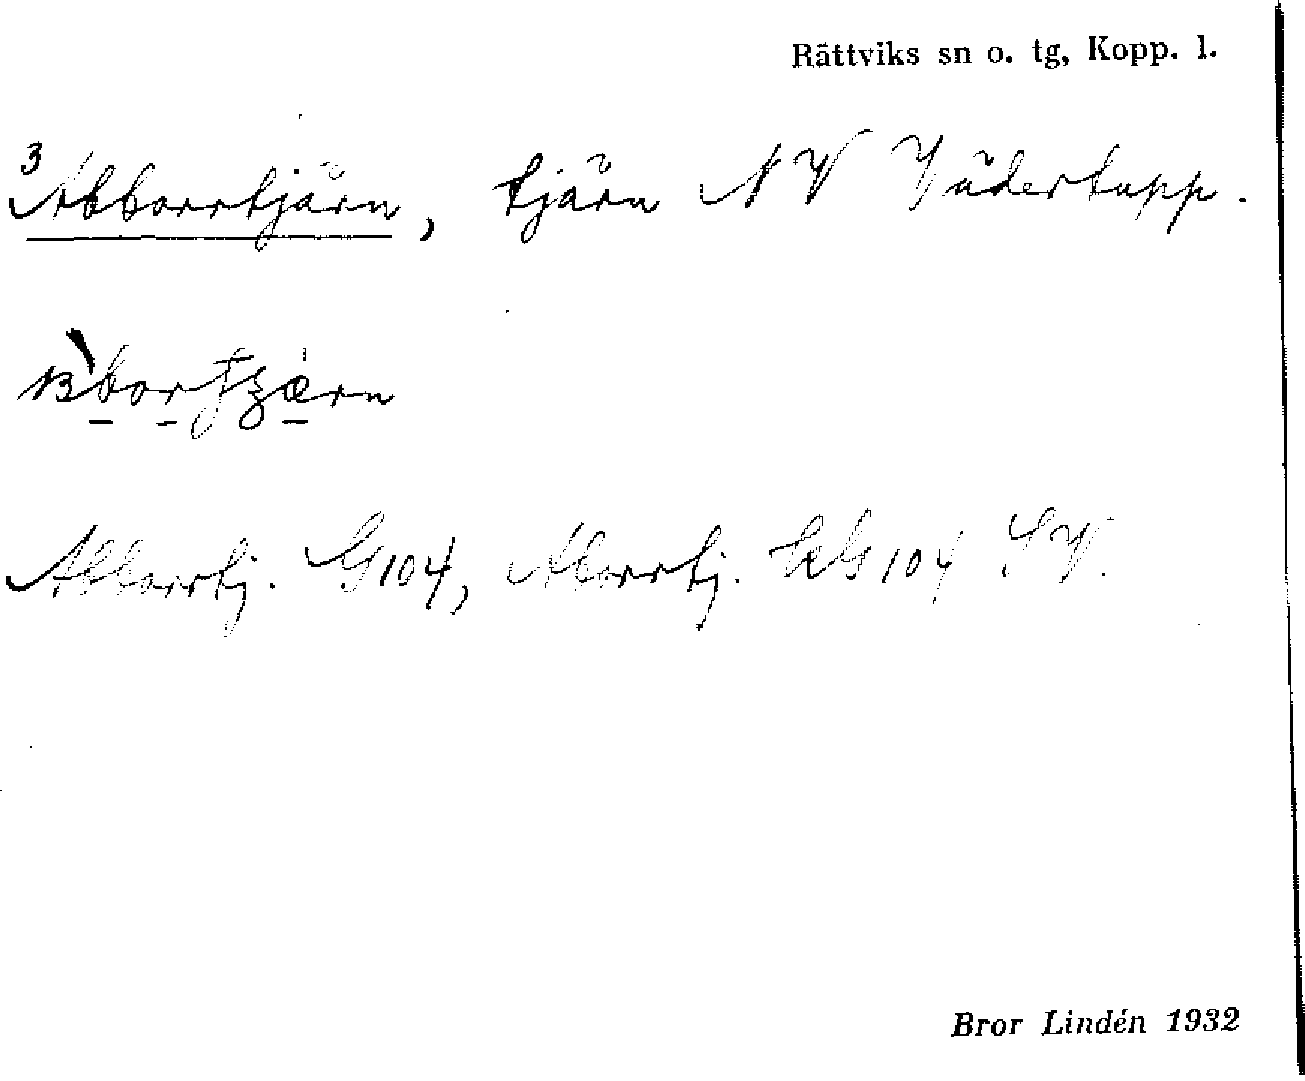 Rättviks sn o. tg, Kopp. l.
3 Abborrtjärn, tjärn NV Jädertupp.
Abborrtj. G104, Aborrtj. GG104 SV.
Bror Lindén 1932